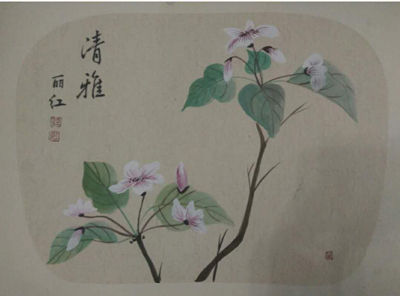 清雅
丽红